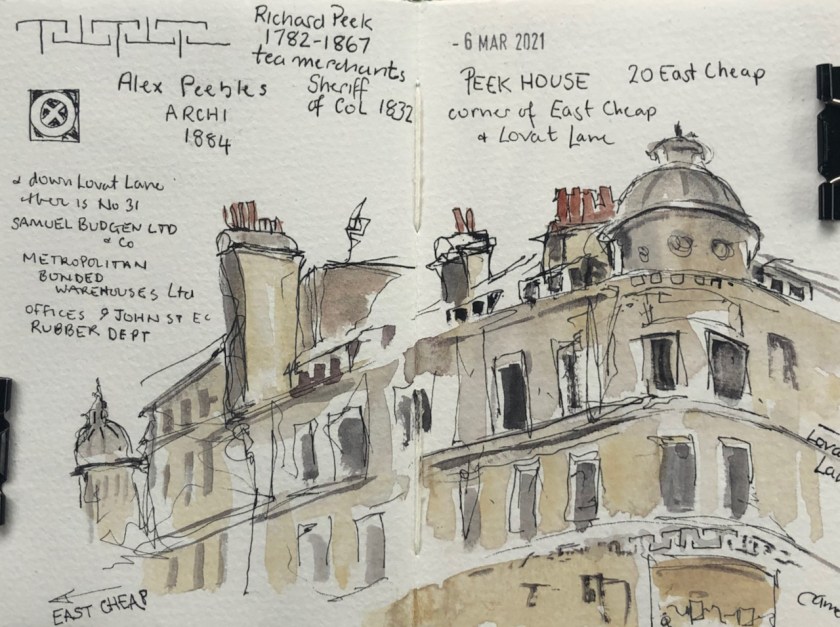 Richard Peek
1782-1867
tea merchants
Sheriff
of CoL 1832
Alex Peebles
ARCHI
1884
& down Lovat Lane
ther is No 31
SAMUEL BUDGEN LTD
& Co
METROPOLITAN
BONDED
WAREHOUSES Ltd
OFFICES 9 JOHN ST EC
RUBBER DEPT
EAST CHEAP
- 6 MAR 2021
PEEK HOUSE 20 East Cheap
corner of East Cheap
& Lovat Lane